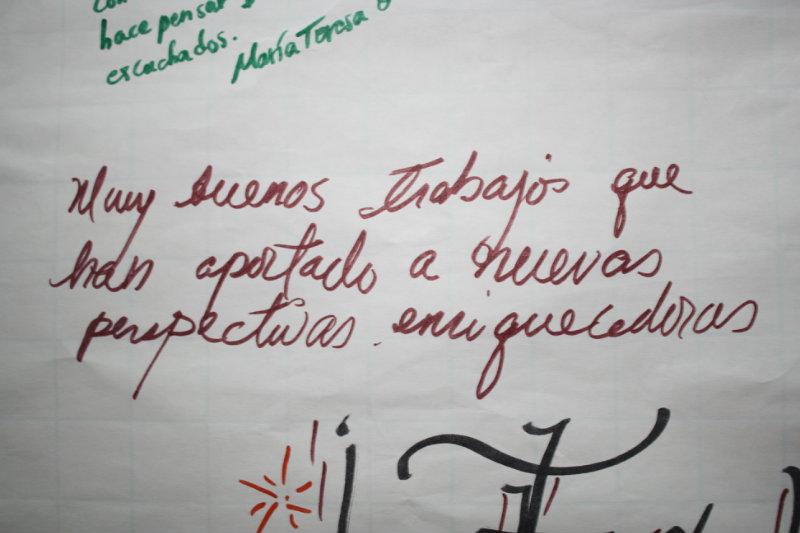 hace pensar
excachados.
María Teresa
Muy buenos trabajos que
han aportado a nuevas
perspectivas enriquecedoras